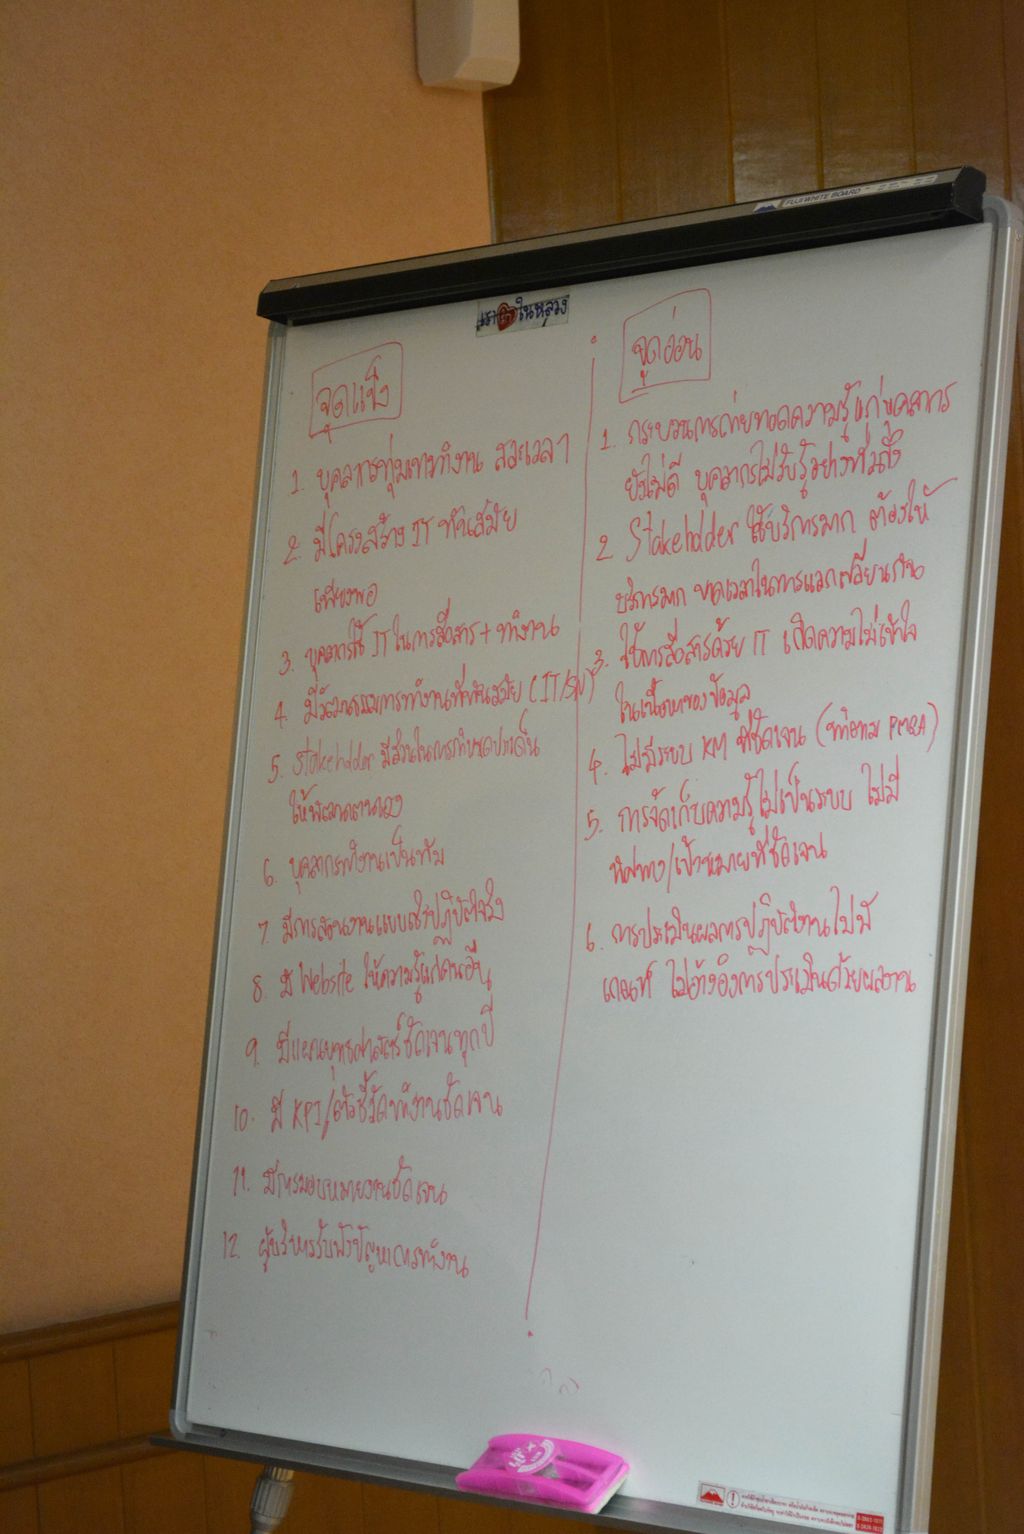 FUJI WHITE BOARD
เรารักในหลวง
จุดแข็ง
1. บุคลากรทุ่มเททำงาน สละเวลา
2. มีโครงสร้าง IT ทันสมัย
เพียงพอ
3. บุคลากรใช้ IT ในการสื่อสาร + ทำงาน
4. มีวัฒนธรรมการทำงานที่ทันสมัย (IT/
5. Stakeholder มีส่วนในการกำหนดประเด็น
ให้พัฒนาตนเอง
6. บุคลากรทำงานเป็นทีม
7. มีการสอนงานแบบเชิงปฏิบัติจริง
8. มี Website ให้ความรู้แก่คนอื่น
9. มีแผนยุทธศาสตร์ชัดเจนทุกปี
10. มี KPI/ตัวชี้วัดทำงานชัดเจน
11. มีการมอบหมายงานชัดเจน
12. ผู้บริหารรับฟังปัญหาการทำงาน
จุดอ่อน
1. กระบวนการถ่ายทอดความรู้แก่บุคลากร
ยังไม่ดี บุคลากรไม่รับรู้อย่างทั่วถึง
2. Stakeholder ใช้บริการมาก ต้องให้
บริการมาก ขาดเวลาในการแลกเปลี่ยนกัน
3. ใช้การสื่อสารด้วย IT เกิดความไม่เข้าใจ
ในเนื้อหาของข้อมูล
4. ไม่มีระบบ KM ที่ชัดเจน (ทำตาม PMQA)
5. การจัดเก็บความรู้ไม่เป็นระบบ ไม่มี
ทิศทาง/เป้าหมายที่ชัดเจน
6. การประเมินผลการปฏิบัติงานไม่มี
เกณฑ์ ไม่อ้างอิงการประเมินด้วยผลงาน